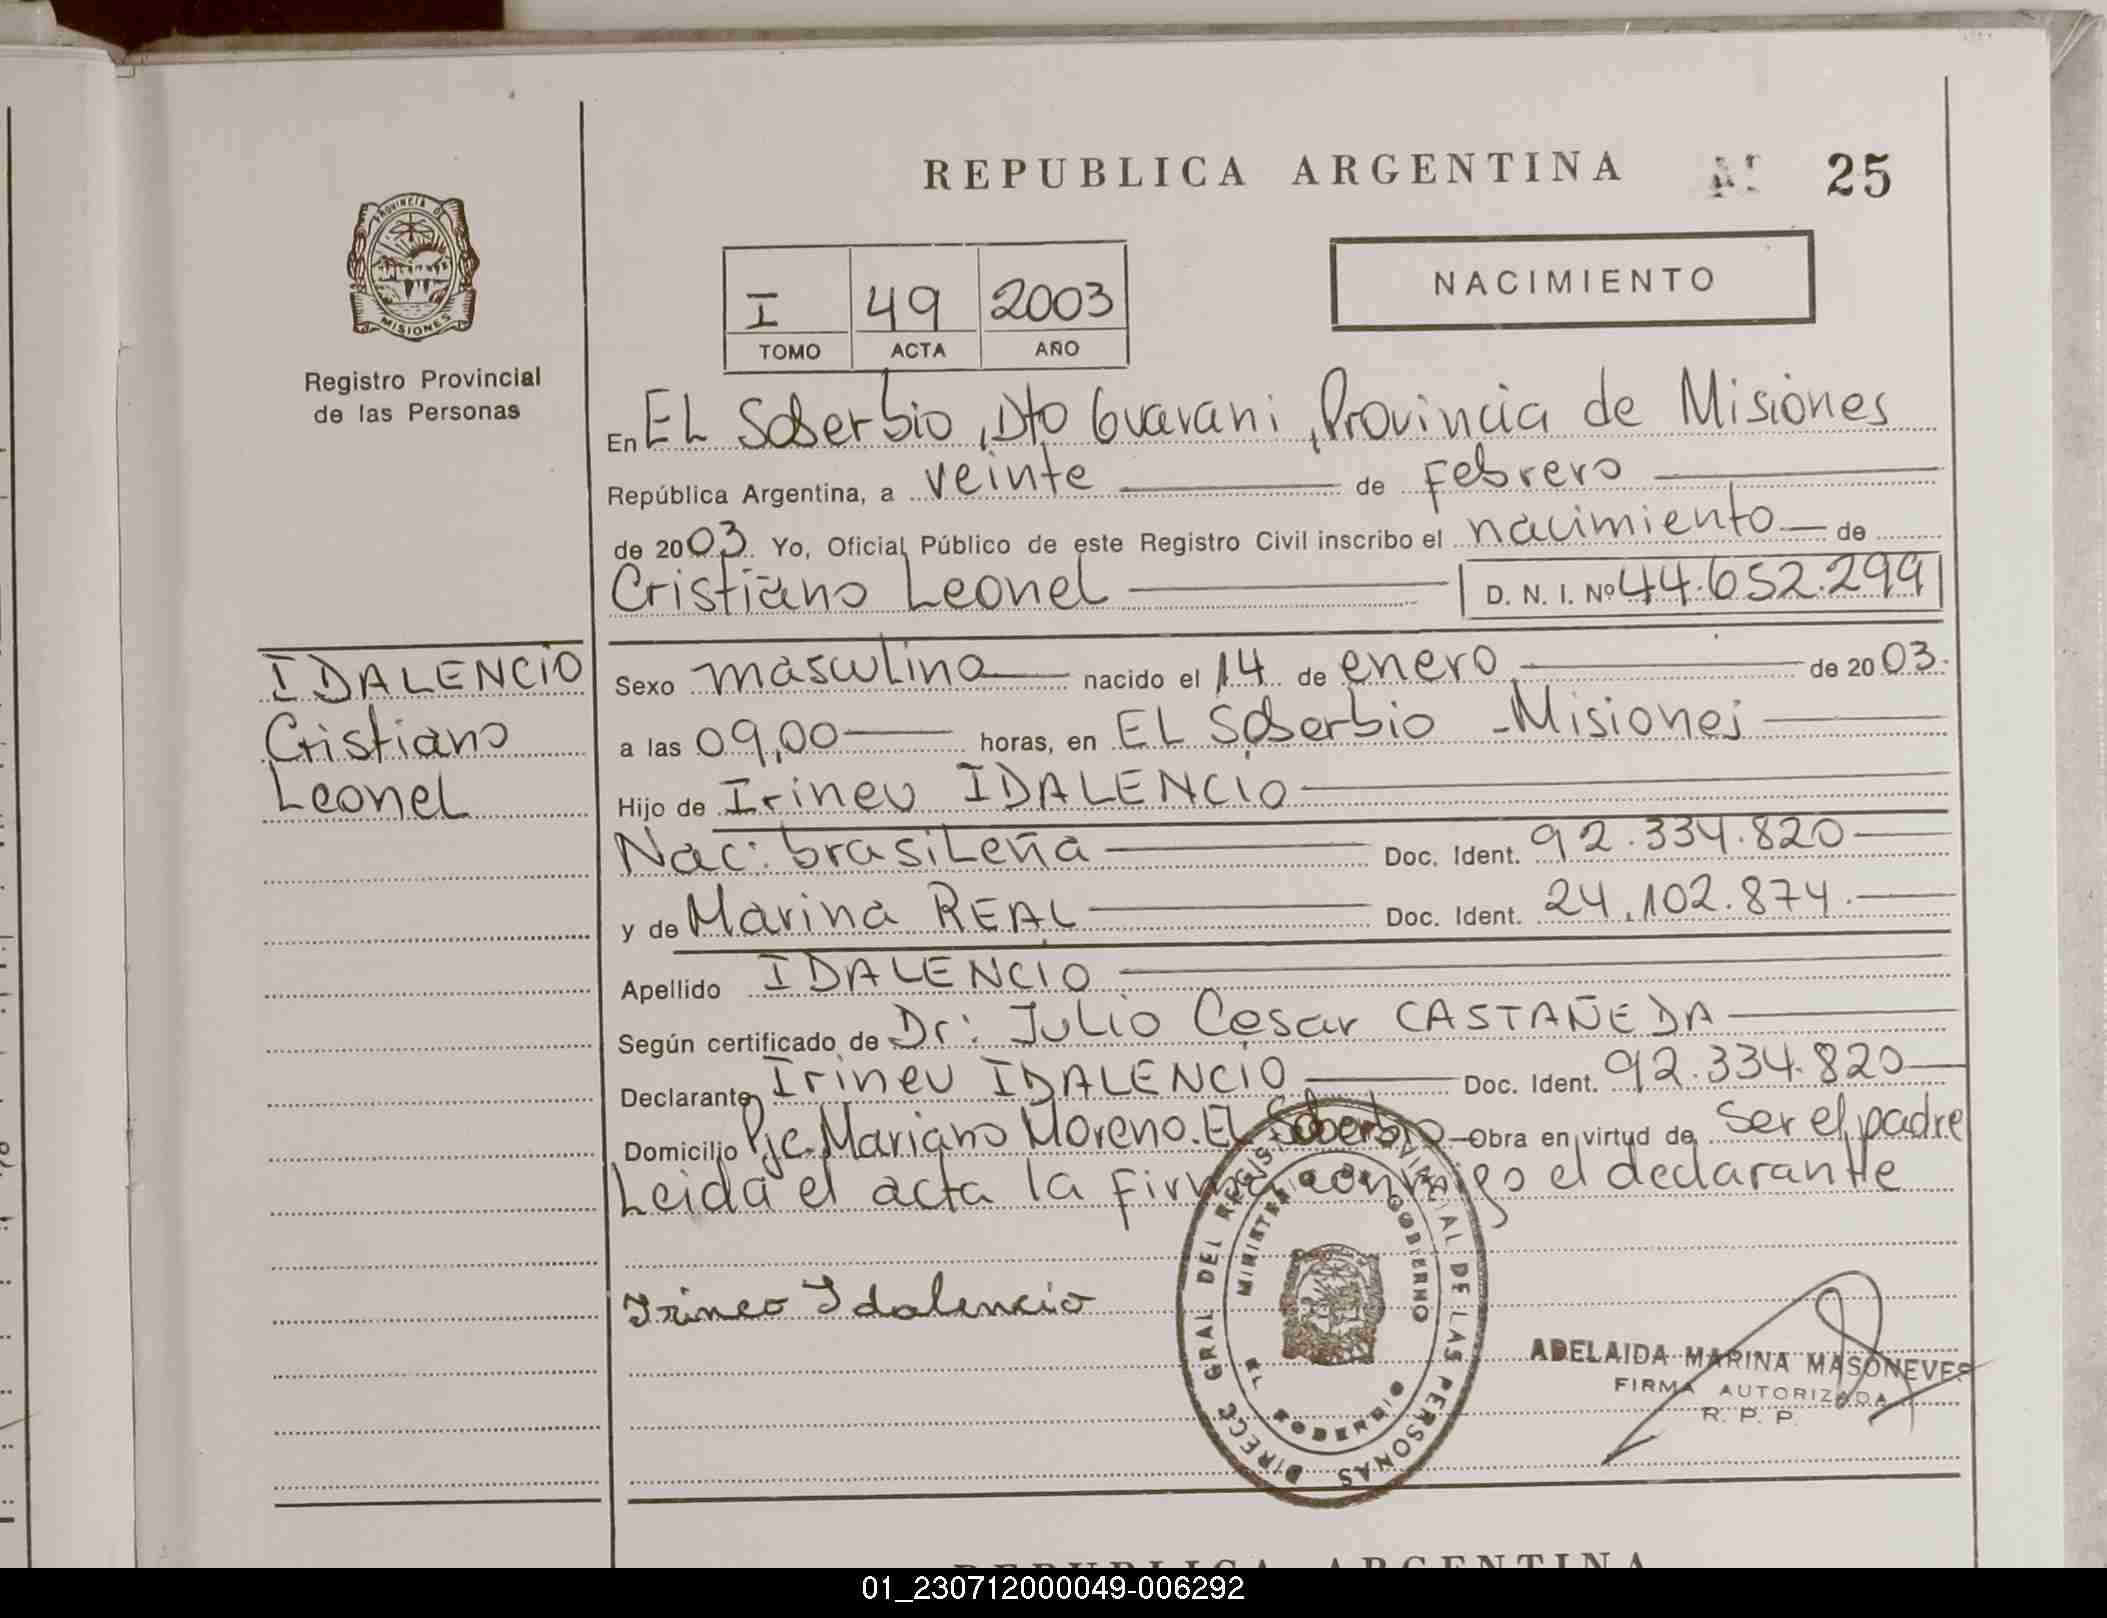 REPUBLICA ARGENTINA Nº 25
PROVINCIA DE
MISIONES
Registro Provincial
de las Personas
NACIMIENTO
I 49 2003
TOMO ACTA AÑO
En EL Soberbio, Dto Guarani, Provincia de Misiones
República Argentina, a veinte de Febrero
de 2003 Yo, Oficial Público de este Registro Civil inscribo el nacimiento de
Cristiano Leonel D. N. I. Nº 44.652.299
IDALENCIO
Cristiano
Leonel
Sexo masculino nacido el 14 de enero de 2003.
a las 09,00 horas, en EL Soberbio - Misiones
Hijo de Irineu IDALENCIO
Nac: brasileña Doc. Ident. 92.334.820
y de Marina REAL Doc. Ident. 24.102.874.
Apellido IDALENCIO
Según certificado de Dr: Julio Cesar CASTAÑEDA
Declarante Irineu IDALENCIO Doc. Ident. 92.334.820
Domicilio Pje. Mariano Moreno. EL Soberbio Obra en virtud de Ser el padre
Leida el acta la firma conmigo el declarante
Irineo Idalencio
DIRECC GRAL DEL REGIST PROVINCIAL DE LAS PERSONAS
MINISTERIO DE GOBIERNO
EL SOBERBIO
ADELAIDA MARINA MASONEVES
FIRMA AUTORIZADA
R. P. P.
REPUBLICA ARGENTINA
01_230712000049-006292